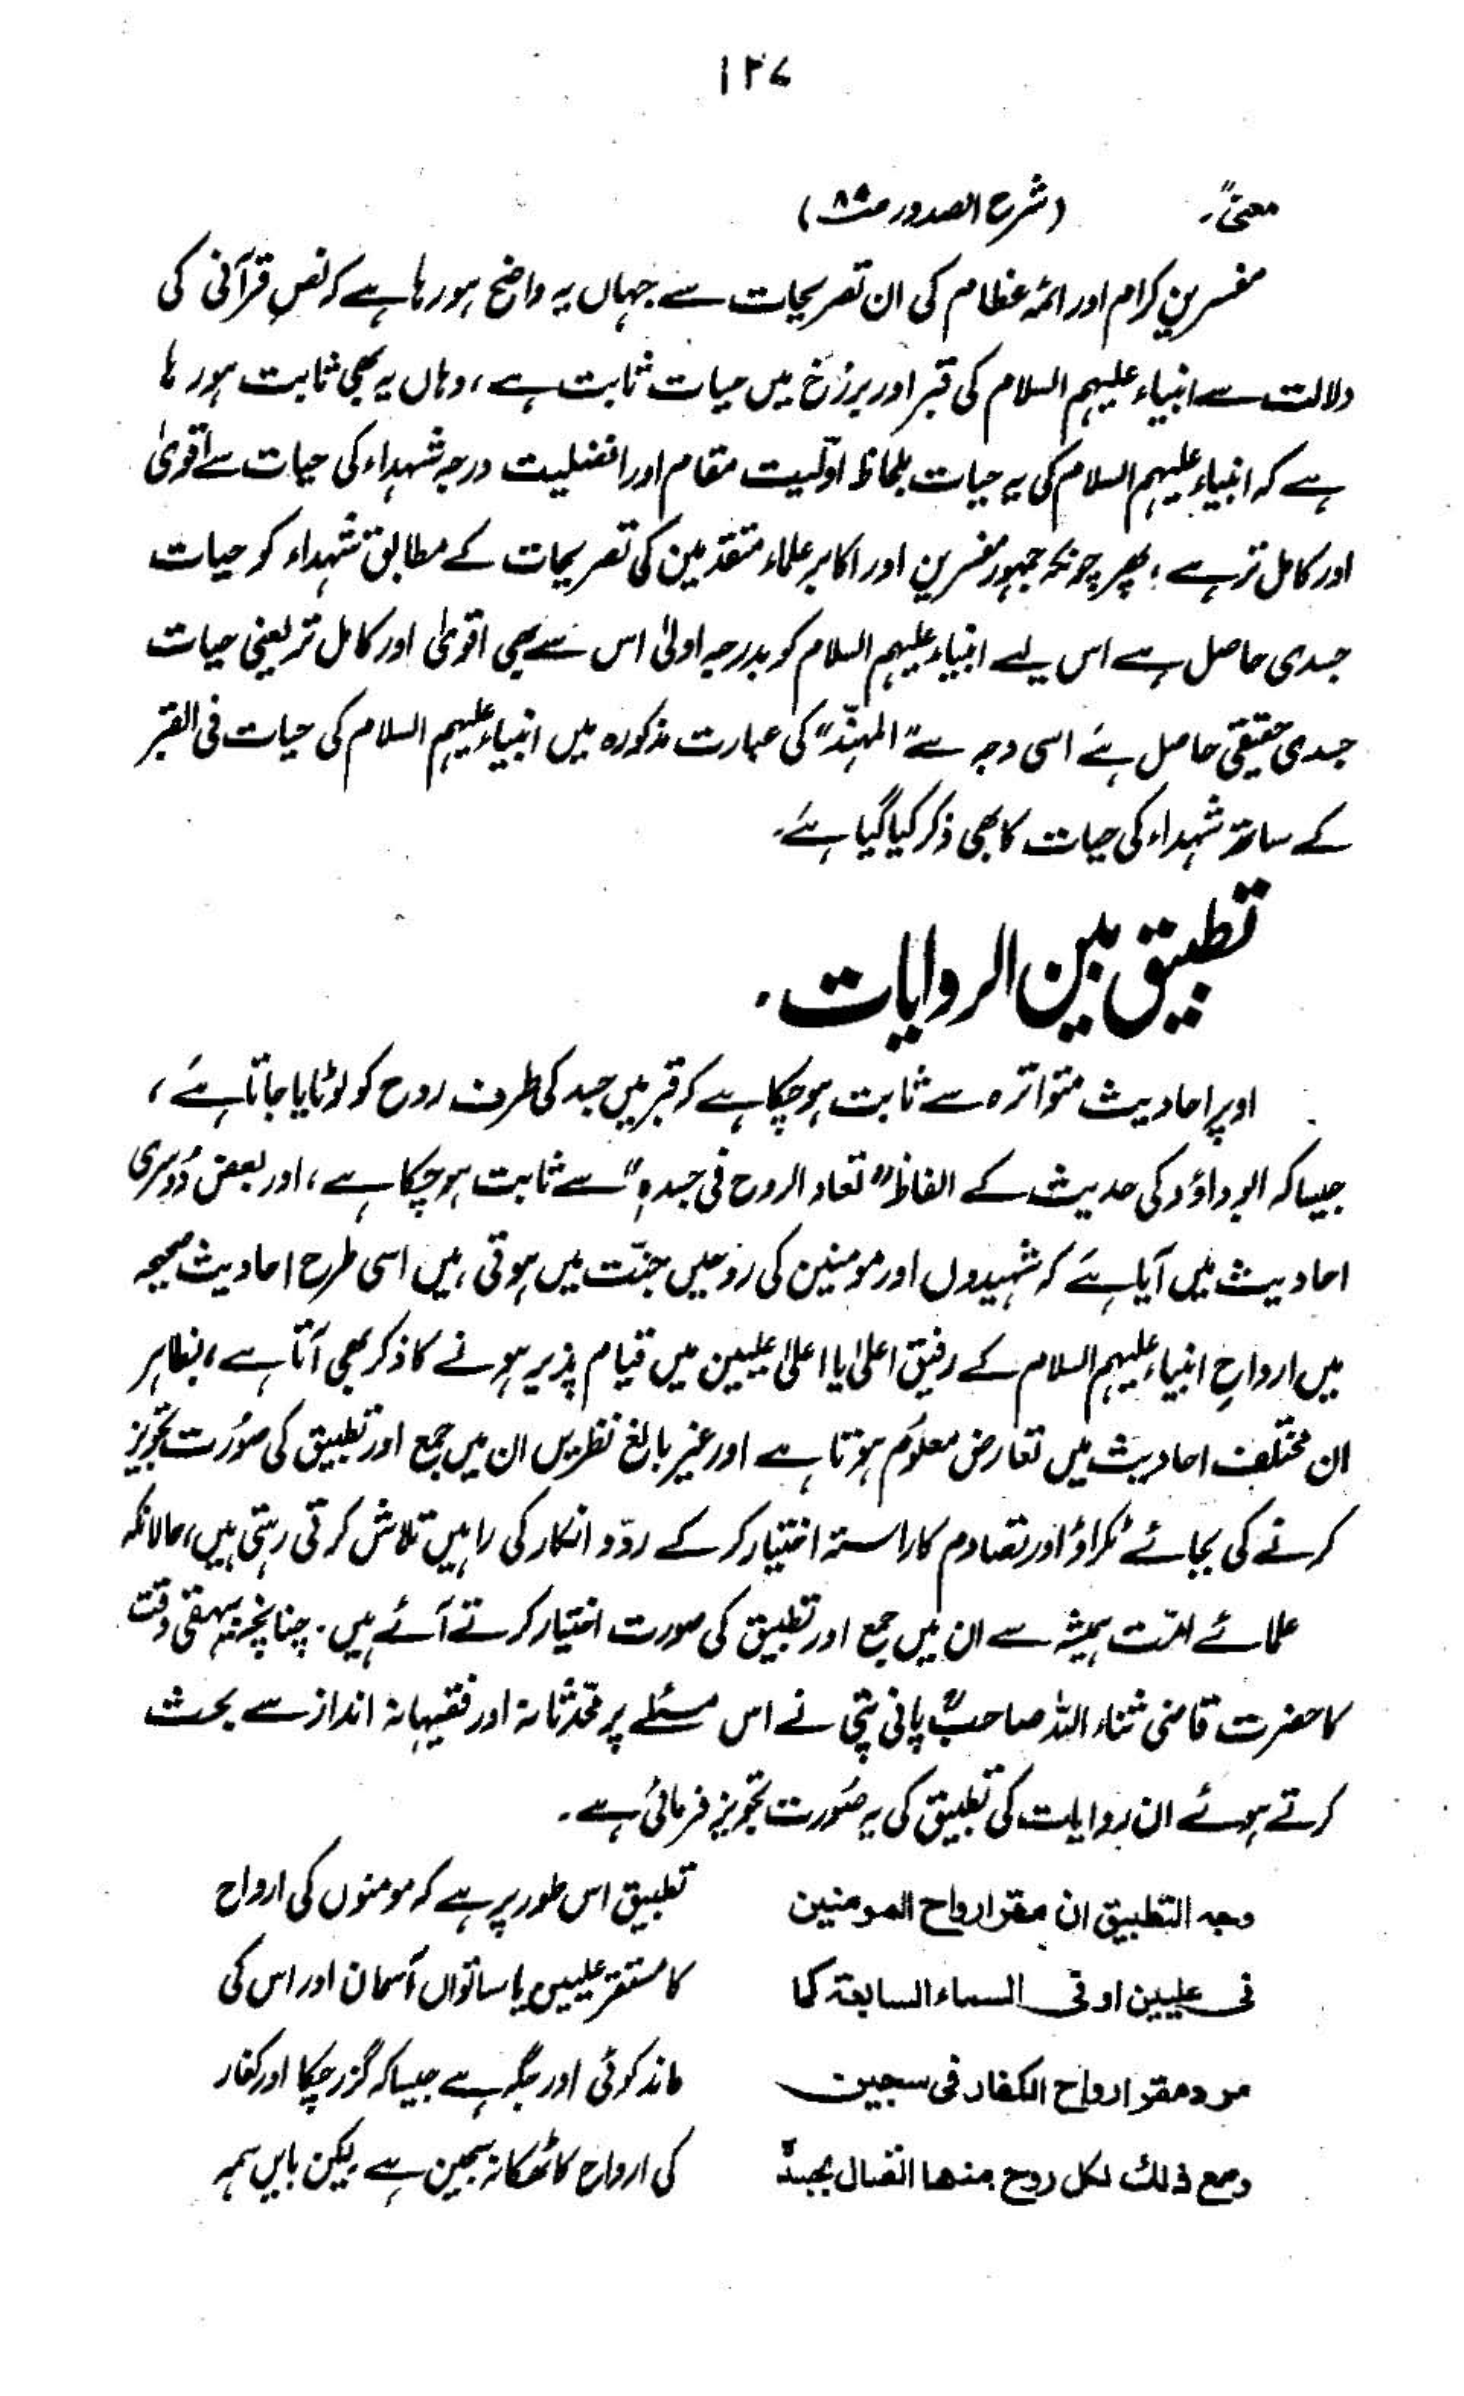 ۱۲۷
معنیً۔ (شرح الصدور ص۸۵)
مفسرینِ کرام اور ائمۂ عظام کی ان تصریحات سے جہاں یہ واضح ہو رہا ہے کہ نصِ قرآنی کی
دلالت سے انبیاء علیہم السلام کی قبر اور برزخ میں حیات ثابت ہے، وہاں یہ بھی ثابت ہو رہا
ہے کہ انبیاء علیہم السلام کی یہ حیات بلحاظ اوّلیت مقام اور افضلیت درجہ شہداء کی حیات سے اقویٰ
اور کامل تر ہے؛ پھر چونکہ جمہور مفسرین اور اکابر علماء متقدمین کی تصریحات کے مطابق شہداء کو حیات
جسدی حاصل ہے اس لیے انبیاء علیہم السلام کو بدرجہ اولیٰ اس سے بھی اقویٰ اور کامل تر یعنی حیات
جسدی حقیقی حاصل ہے اسی وجہ سے "المہنّد" کی عبارت مذکورہ میں انبیاء علیہم السلام کی حیات فی القبر
کے ساتھ شہداء کی حیات کا بھی ذکر کیا گیا ہے۔
تطبیق بین الروایات۔
اوپر احادیث متواترہ سے ثابت ہو چکا ہے کہ قبر میں جسد کی طرف روح کو لوٹایا جاتا ہے،
جیسا کہ ابو داؤد کی حدیث کے الفاظ "تعاد الروح فی جسدہٖ" سے ثابت ہو چکا ہے، اور بعض دُوسری
احادیث میں آیا ہے کہ شہیدوں اور مومنین کی رُوحیں جنّت میں ہوتی ہیں اسی طرح احادیث صحیحہ
میں ارواحِ انبیاء علیہم السلام کے رفیق اعلیٰ یا اعلیٰ علیین میں قیام پذیر ہونے کا ذکر بھی آتا ہے، بظاہر
ان مختلف احادیث میں تعارض معلوم ہوتا ہے اور غیر بالغ نظریں ان میں جمع اور تطبیق کی صوُرت تجویز
کرنے کی بجائے ٹکراؤ اور تصادم کا راستہ اختیار کر کے ردّ و انکار کی راہیں تلاش کرتی رہتی ہیں، حالانکہ
علمائے امّت ہمیشہ سے ان میں جمع اور تطبیق کی صورت اختیار کرتے آئے ہیں۔ چنانچہ بیہقی وقت
کا حضرت قاضی ثناء اللہ صاحبؒ پانی پتی نے اس مسئلے پر محدّثانہ اور فقیہانہ انداز سے بحث
کرتے ہوئے ان روایات کی تطبیق کی یہ صُورت تجویز فرمائی ہے۔
وجہ التطبیق ان مقر ارواح المومنین
فی علیین او فی السماء السابعۃ کما
مر و مقر ارواح الکفار فی سجین
و مع ذلک لکل روح منھا اتصال بجسدہٖ
تطبیق اس طور پر ہے کہ مومنوں کی ارواح
کا مستقر علیین یا ساتواں آسمان اور اس کی
مانند کوئی اور جگہ ہے جیسا کہ گزر چکا اور کفار
کی ارواح کا ٹھکانہ سجین ہے لیکن بایں ہمہ